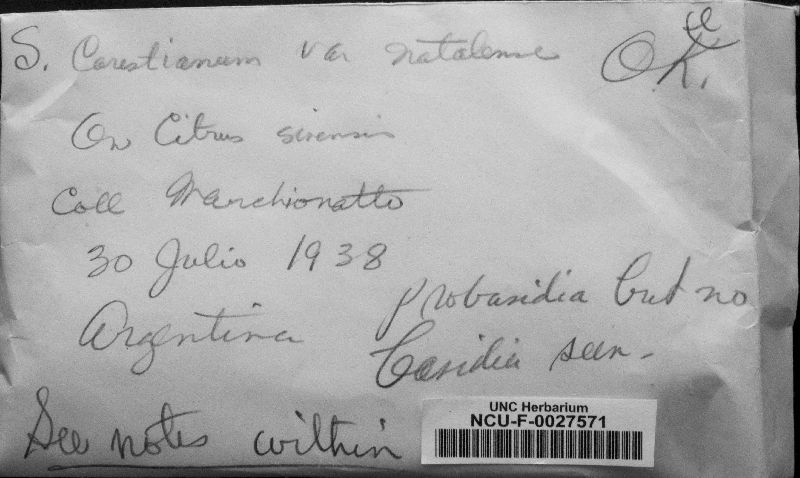 S. Carestianum var natalense OK.
On Citrus sinensis
Coll Marchionatto
30 Julio 1938
Argentina
probasidia but no
basidia seen-
See notes within
UNC Herbarium
NCU-F-0027571